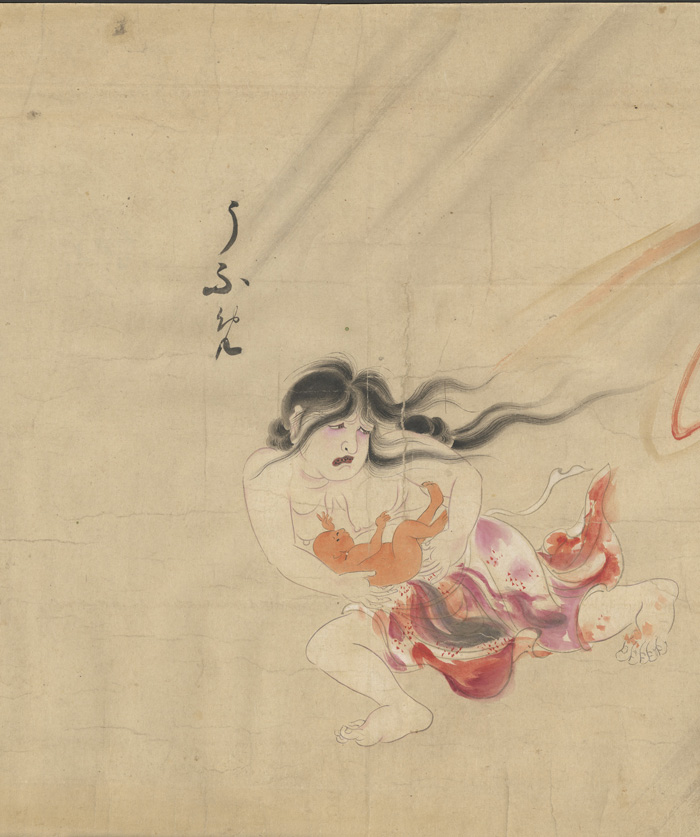 うふめ